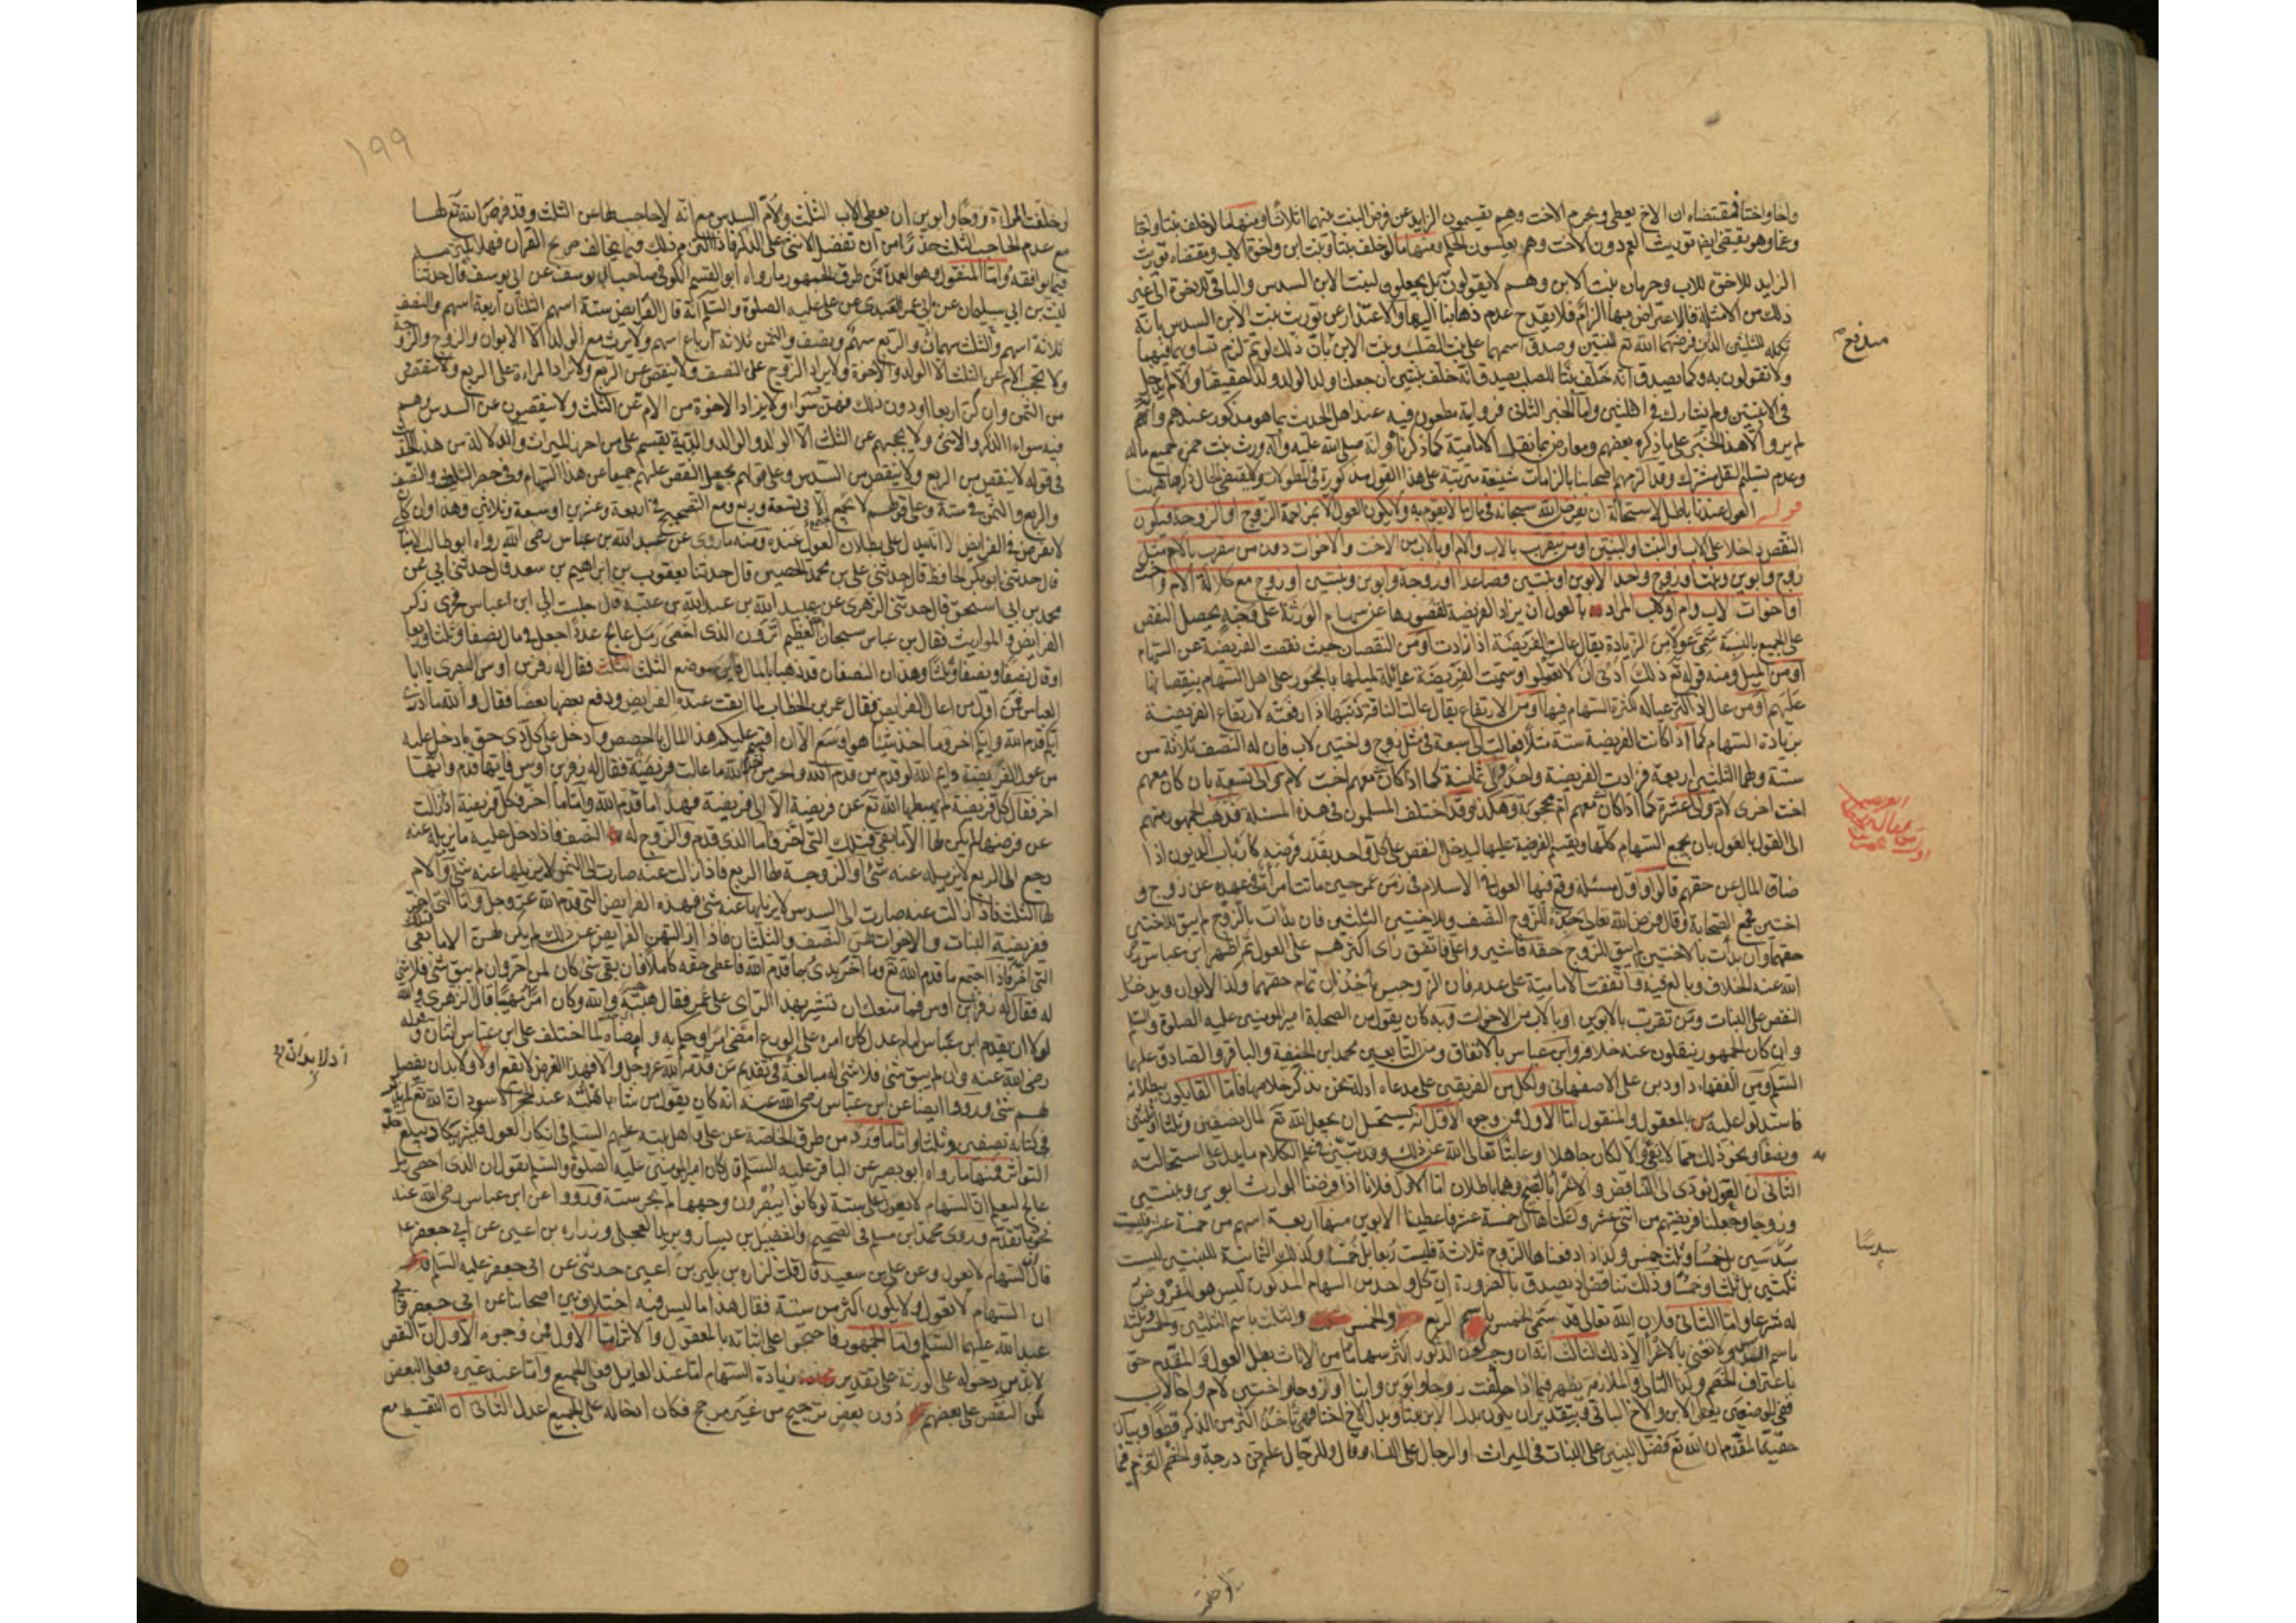 واخا واختا فمقتضاه ان الاخ يعطى ويحرم الاخت وهم يقسمون الزايد عن فرض البنت بينهما اثلاثا ومنها ما لو خلف بنتا واختا
وعما وهو يقتضى توريث العم دون الاخت وهم يعكسون الحكم ومنها ما لو خلف بنتا وبنت ابن واخوة لاب ومقتضاه توريث
الزايد للاخوة للاب وحرمان بنت الابن وهم لا يقولون بل يجعلون لبنت الابن السدس والباقى للاخوة الى غير
ذلك من الامثلة فالاعتراض بها الزام فلا يقدح عدم ذهابنا اليها والاعتذار عن توريث بنت الابن السدس بانه
تكملة للثلثين الذين فرضهما الله تع للبنتين وصدق اسمهما على بنت الصلب وبنت الابن بان ذلك لو تم لزم تساويهما فيهما
ولا تقولون به وكما يصدق انه خلف بنتا للصلب يصدق انه خلف بنتين ان جعلنا ولد الولد ولدا حقيقة والا لم يدخل
فى الابنتين ولم يشارك فى الثلثين واما الخبر الثانى فرواية مطعون فيه عند اهل الحديث بما هو مذكور عندهم وانهم
لم يرووا الا هذا الخبر على ما ذكره بعضهم ومعارض بما نقله الامامية كما ذكرناه وانه صلى الله عليه وآله ورث بنت حمزة جميع ماله
وعدم تسليم النقل مشترك وقد الزمهم اصحابنا بالزامات شنيعة مترتبة على هذا القول مذكورة فى المطولات ولا يقتضى الحال ذكرها هيهنا
قوله العول عندنا باطل لاستحالة ان يفرض الله سبحانه فى مال ما لا يقوم به ولا يكون العول الا بمزاحمة الزوج او الزوجة فيكون
النقص داخلا على الاب والبنت والبنتين او من يتقرب بالاب والام او بالاب من الاخت والاخوات دون من يتقرب بالام مثل
زوج وابوين وبنت او زوج واحد الابوين وبنتين فصاعدا او زوجة وابوين وبنتين او زوج مع كلالة الام واخت
او اخوات لاب وام او لاب المراد بالعول ان يزاد الفريضة لقصورها عن سهام الورثة على وجه يحصل النقص
على الجميع بالنسبة سمى عولا من الزيادة يقال عالت الفريضة اذا زادت او من النقصان حيث نقصت الفريضة عن السهام
او من الميل ومنه قوله تع ذلك ادنى ان لا تعولوا وسميت الفريضة عائلة لميلها بالجور على اهل السهام بنقصانها
عليهم او من عال اذا كثر عياله لكثرة السهام فيها او من الارتفاع يقال عالت الناقة ذنبها اذا رفعته لارتفاع الفريضة
بزيادة السهام كما اذا كانت الفريضة ستة مثلا فعالت الى سبعة فى مثل زوج واختين لاب فان له النصف ثلاثة من
ستة ولهما الثلثين اربعة فزادت الفريضة واحدا والى ثمانية كما اذا كان معهم اخت لام والى تسعة بان كان معهم
اخت اخرى لام والى عشرة كما اذا كان معهم ام محجوبة وهكذا وقد اختلف المسلمون فى هذه المسئلة فذهب الجمهور منهم
الى القول بالعول بان يجمع السهام كلها ويقسم الفريضة عليها ليدخل النقص على كل واحد بقدر فرضه كارباب الديون اذا
ضاق المال عن حقهم قالوا واول مسئلة وقع فيها العول فى الاسلام فى زمن عمر حين ماتت امرأة فى عهده عن زوج و
اختين فجمع الصحابة وقال فرض الله تعالى جده للزوج النصف وللاختين الثلثين فان بدأت بالزوج لم يبق للاختين
حقهما وان بدأت بالاختين لم يبق للزوج حقه فاشيروا على فاتفق رأى اكثرهم على العول ثم اظهر ابن عباس رضى
الله عنه الخلاف وبالغ فيه واتفقت الامامية على عدمه فان الزوجين ياخذان تمام حقهما وكذا الابوان ويدخل
النقص على البنات ومن تقرب بالابوين او بالاب من الاخوات وبه كان يقول من الصحابة امير المومنين عليه الصلوة والسلم
وان كان الجمهور ينقلون عنه خلافه وابن عباس بالاتفاق ومن التابعين محمد ابن الحنفية والباقر والصادق عليهما
السلم ومن الفقهاء داود بن على الاصفهانى ولكل من الفريقين على مدعاه ادلة نحن نذكر خلاصها فاما القايلون ببطلانه
فاستدلوا عليه بالمعقول والمنقول اما الاول فمن وجوه الاول انه يستحيل ان يجعل الله تع لمال نصفين وثلثا او ثلثين
ونصفا ونحو ذلك مما لا يفى والا لكان جاهلا او عابثا تعالى الله عن ذلك وقد تبين فى علم الكلام ما يدل على استحالته
الثانى ان القول يؤدى الى التناقض والاغراء بالقبيح وهما باطلان اما الاول فلانا اذا فرضنا الوارث ابوين وبنتين
وزوجا وجعلنا فريضتهم من اثنى عشر وعلناها الى خمسة عشر فاعطينا الابوين منها اربعة اسهم من خمسة عشر فليست
سدسين بل خمسا وثلث خمس وكذا اذا دفعنا الى الزوج ثلاثة فليست ربعا بل خمسا وكذلك الثمانية للبنتين ليست
ثلثين بل ثلثا وخمسا وذلك تناقض اذ يصدق بالضرورة ان كل واحد من السهام المذكورة ليس هو المفروض
له شرعا واما الثانى فلان الله تعالى قد سمى الخمس باسم الربع والخمس والثلث باسم الثلثين والخمس وثلثه
باسم السدسين ولا نعنى بالاغراء الا ذلك الثالث انه ان وجب كون الذكور اكثر سهاما من الاناث بطل العول والمقدم حق
باعتراف الخصم وكذا التالى والملازمة يظهر فيما اذا خلفت زوجا وابوين وابنا او زوجا واختين لام واخا لاب
ففى الموضعين يعطى الابن والاخ الباقى وبتقدير ان يكون بدل الابن بنتا وبدل الاخ اختا فهى تاخذ اكثر من الذكر قطعا وبيان
حقية المقدم ان الله تع فضل البنين على البنات فى الميراث والرجال على النساء وقال وللرجال عليهن درجة والخصم التزم فيما
مندفع
سدسا
لو خلفت
١٩٩
لو خلفت امراة زوجا وابوين ان يعطى الاب الثلث والام السدس مع انه لا حاجب لها عن الثلث وقد فرض الله تع لها
مع عدم الحاجب الثلث حذرا من ان تفضل الانثى على الذكر فاذا التزم ذلك فيما يخالف صريح القران فهلا يلتزمه
فيما يوافقه واما المنقول وهو العمدة فمن طرق الجمهور ما رواه ابو القسم الكوفى صاحب ابى يوسف عن ابى يوسف قال حدثنا
ليث بن ابى سليمان عن ابى عمر العبدى عن على عليه الصلوة والسلم انه قال الفرايض ستة اسهم الثلثان اربعة اسهم والنصف
ثلاثة اسهم والثلث سهمان والربع سهم ونصف والثمن ثلاثة ارباع اسهم ولا يرث مع الولد الا الابوان والزوج والزوجة
ولا يحجب الام عن الثلث الا الولد والاخوة ولا يزاد الزوج على النصف ولا ينقص عن الربع ولا تزاد المراة على الربع ولا تنقص
من الثمن وان كن اربعا او دون ذلك فهن سواء ولا يزاد الاخوة من الام عن الثلث ولا ينقصون عن السدس وهم
فيه سواء الذكر والانثى ولا يحجبهم عن الثلث الا الولد والوالد والدية يقسم على من احرز الميراث والدلالة من هذا الخبر
فى قوله لا ينقص من الربع ولا ينقص من السدس وعلى قولهم يجعل النقص عليهم جميعا عن هذا السهام وفى حصر الثلثين والنصف
والربع والثمن فى ستة وعلى قولهم لا يجتمع الا فى تسعة وربع ومع التصحيح فى اربعة وعشرين او سبعة وثلاثين وهذا وان كان
لا يفرض فى الفرايض الا انه يدل على بطلان العول عنده ومنه ما روى عن عبد الله بن عباس رضى الله رواه ابو طالب الانبا
قال حدثنى ابو بكر الحافظ قال حدثنى على بن محمد الحصينى قال حدثنا يعقوب بن ابراهيم بن سعد قال حدثنى ابى عن
محمد بن ابى اسحق قال حدثنى الزهرى عن عبيد الله بن عبد الله بن عتبة قال جلست الى ابن عباس فجرى ذكر
الفرايض والمواريث فقال بن عباس سبحان الله العظيم اترون الذى احصى رمل عالج عددا جعل فى مال نصفا وثلثا وربعا
او قال نصفا ونصفا وثلثا وهذان النصفان قد ذهبا بالمال فاين موضع الثلث فقال له زفر بن اوس البصرى يا ابا
العباس فمن اول من اعال الفرايض فقال عمر بن الخطاب لما التفت عنده الفرايض ودفع بعضها بعضا فقال والله ما ادرى
ايكم قدم الله وايكم اخر وما اجد شيئا هو اوسع الا ان اقسم عليكم هذا المال بالحصص وادخل على كل ذى حق ما دخل عليه
من عول الفريضة وايم الله لو قدم من قدم الله واخر من اخر الله ما عالت فريضة فقال له زفر بن اوس فايها قدم وايها
اخر فقال كل فريضة لم يهبطها الله تع عن فريضة الا الى فريضة فهذا ما قدم الله واما ما اخر فكل فريضة اذا زالت
عن فرضها لم يكن لها الا ما بقى فتلك التى اخر فاما الذى قدم والزوج له النصف فاذا دخل عليه ما يزيله عنه
رجع الى الربع لا يزيله عنه شئ والزوجة لها الربع فاذا زالت عنه صارت الى الثمن لا يزيلها عنه شئ والام
لها الثلث فاذا زالت عنه صارت الى السدس لا يزيلها عنه شئ فهذه الفرايض التى قدم الله عز وجل واما التى اخر
ففريضة البنات والاخوات لهن النصف والثلثان فاذا ازالتهن الفرايض عن ذلك لم يكن لهن الا ما بقى فتلك
التى اخر فاذا اجتمع ما قدم الله تع وما اخر بدئ بما قدم الله فاعطى حقه كاملا فان بقى شئ كان لمن اخر وان لم يبق شئ فلا شئ
له فقال له زفر بن اوس فما منعك ان تشير بهذا الراى على عمر فقال هبته والله وكان امرا مهيبا قال الزهرى والله
لولا ان يقدم ابن عباس امام عدل كان امره على الورع امضى امرا وحكم به وامضاه لما اختلف على ابن عباس اثنان وقوله
رضى الله عنه وان لم يبق شئ فلا شئ له مبالغة فى تقديم من قدمه الله عز وجل والا فهذا الفرض لا يقع اولا ولا بد ان يفضل
لهم شئ ورووا ايضا عن ابن عباس رضى الله عنه انه كان يقول من شاء باهلته عند الحجر الاسود ان الله تع لم يذكر
فى كتابه نصفين وثلثا واما ما ورد من طرق الخاصة عن على واهل بيته عليهم السلم فى انكار العول فكثير يكاد يبلغ حد
التواتر فمنها ما رواه ابو بصير عن الباقر عليه السلم قال كان امير المومنين عليه الصلوة والسلم يقول ان الذى احصى رمل
عالج ليعلم ان السهام لا يعول على ستة لو كانوا يبصرون وجهها لم تجز ستة ورووا عن ابن عباس رضى الله عنه
نحو ما تقدم وروى محمد ابن مسلم فى الصحيح والفضيل بن يسار وبريد العجلى وزراره بن اعين عن ابى جعفر ع
قال ان السهام لا يعول وعن على بن سعيد قال قلت لزراره بن بكير بن اعين حدثنى عن ابى جعفر عليه السلم
ان السهام لا تعول ولا يكون اكثر من ستة فقال هذا ما ليس فيه اختلاف بين اصحابنا عن ابى جعفر وابى
عبد الله عليهما السلم واما الجمهور فاحتجوا على اثباته بالمعقول والاثر اما الاول فمن وجوه الاول ان النقص
لا بد من دخوله على الورثة على تقدير زيادة السهام اما عند العايل فعلى الجميع واما عند غيره فعلى البعض
لكن النقص على بعضهم دون بعض ترجيح من غير مرجح فكان ادخاله على الجميع اعدل الثانى ان التقسيط مع